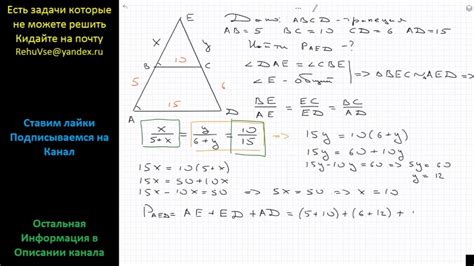 Есть задачи которые
не можете решить
Кидайте на почту
RehuVse@yandex.ru
Ставим лайки
Подписываемся на
Канал
Остальная
Информация в
Описании канала
E
x
y
B
10
C
5
6
A
15
D
Дано: ABCD - трапеция
AB = 5 BC = 10 CD = 6 AD = 15
Найти P_AED - ?
∠DAE = ∠CBE
∠E - общий
=> △BEC ~ △AED =>
BE/AE = EC/ED = BC/AD
x/(5+x) = y/(6+y) = 10/15
=> 15y = 10(6+y)
15y = 60 + 10y
15y - 10y = 60 => 5y = 60
y = 12
15x = 10(5+x)
15x = 50 + 10x
15x - 10x = 50 => 5x = 50 => x = 10
P_AED = AE + ED + AD = (5+10) + (6+12) +